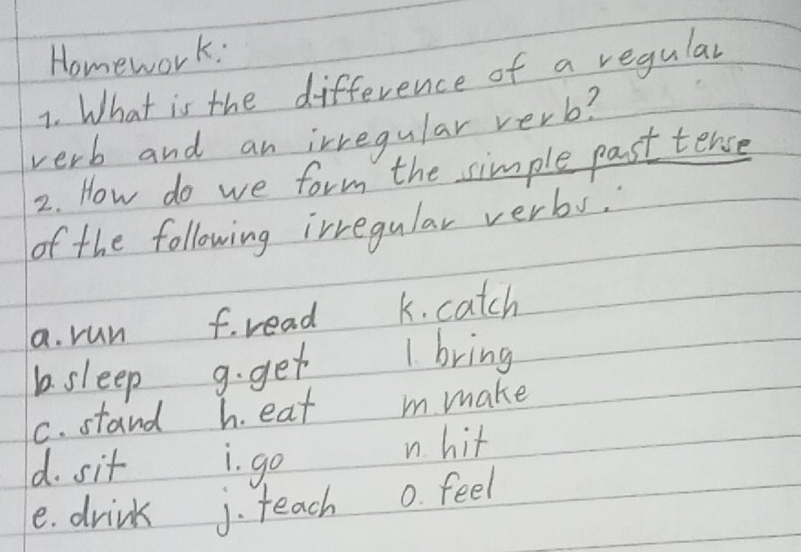 Homework:
1. What is the difference of a regular
verb and an irregular verb?
2. How do we form the simple past tense
of the following irregular verbs:
a. run f. read k. catch
b. sleep g. get l. bring
c. stand h. eat m. make
d. sit i. go n. hit
e. drink j. teach o. feel